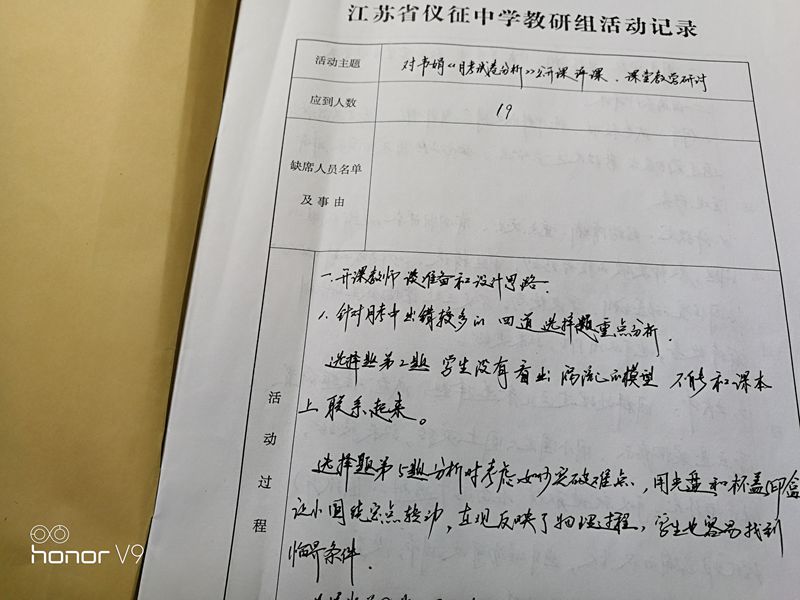 江苏省仪征中学教研组活动记录
活动主题
对韦娟《月考试卷分析》公开课评课、课堂教学研讨
应到人数
19
缺席人员名单
及事由
活动过程
一.开课教师谈准备和设计思路.
1.针对月考中出错较多的四道选择题重点分析.
选择题第2题 学生没有看出 涡流的模型 不能和课本
上联系起来。
选择题第5题分析时考虑如何突破难点,用光盘和杯盖
让小圆绕定点转动,直观反映了物理过程,学生也容易找到
临界条件.
honor V9